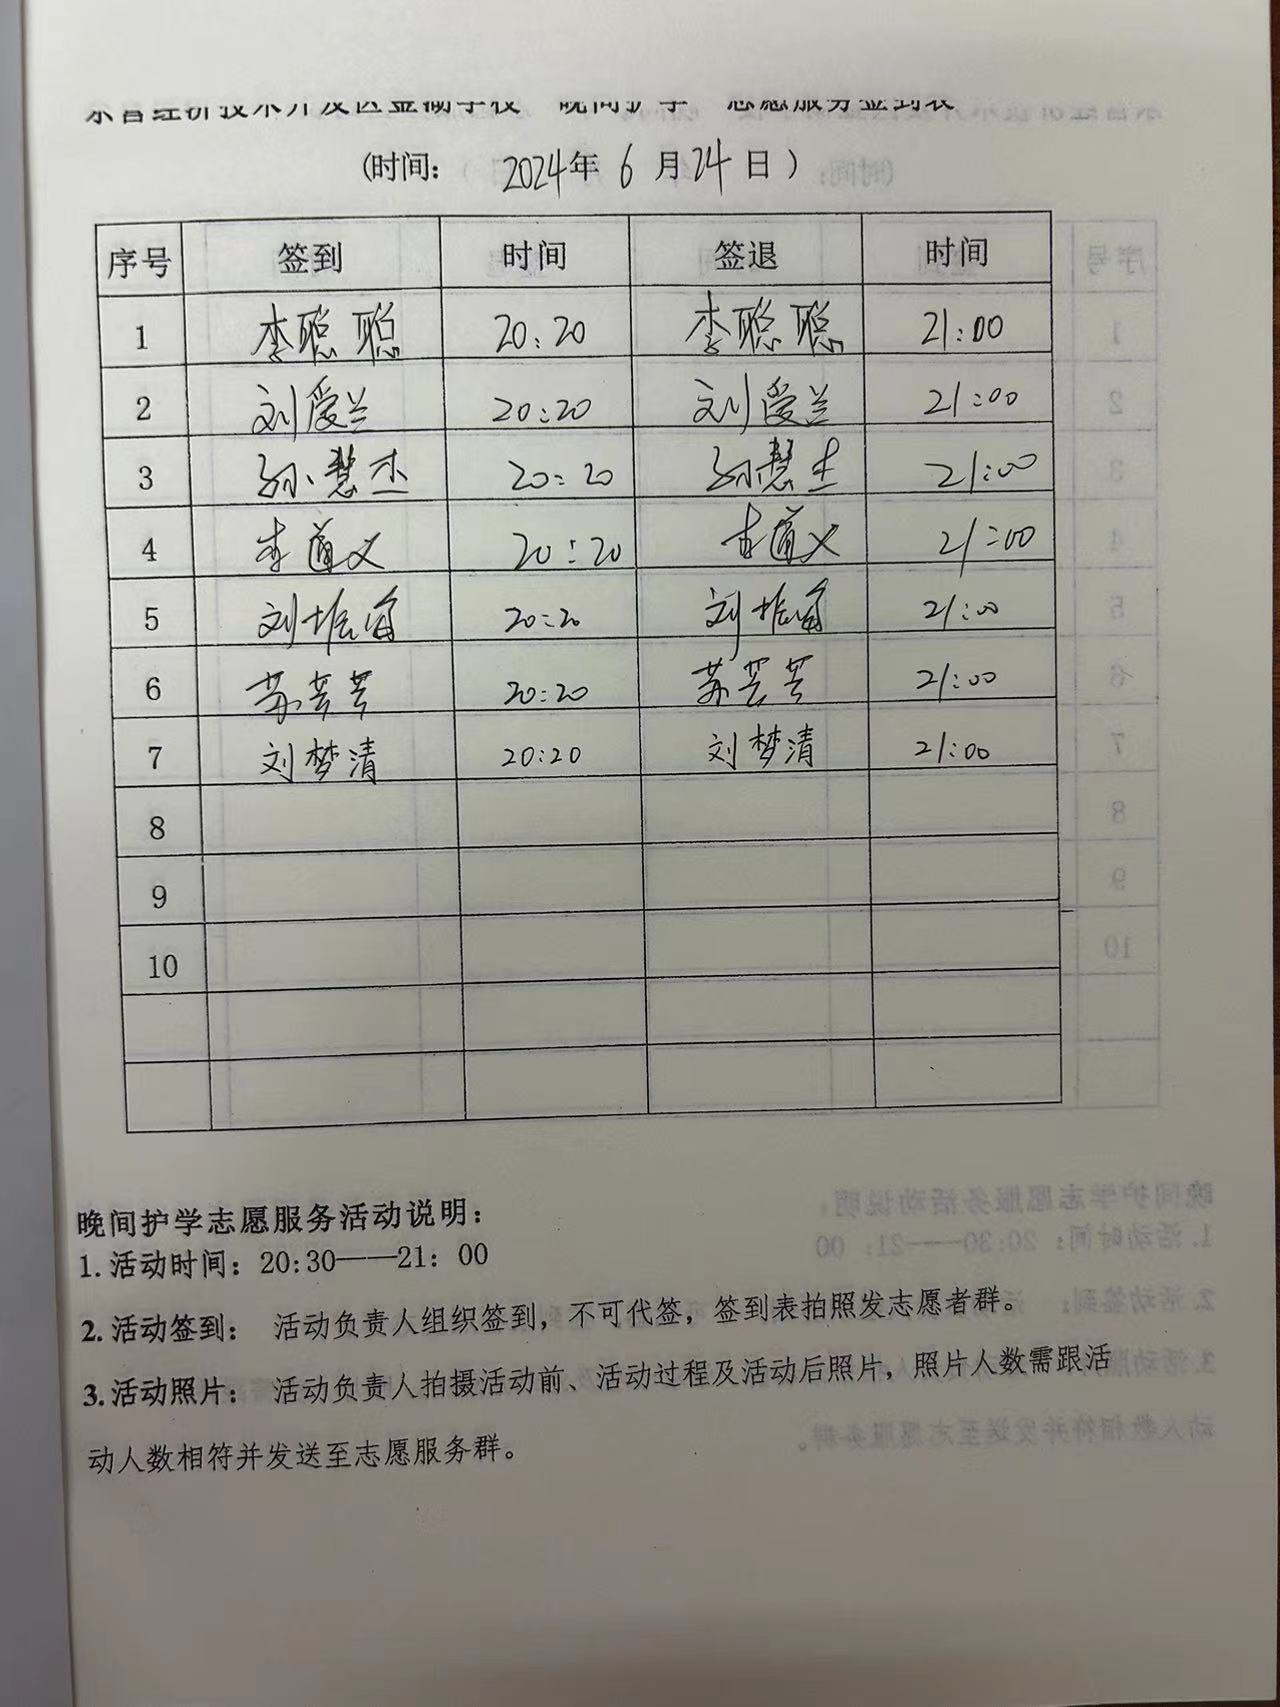 东营经济技术开发区金湖学校“晚间护学”志愿服务签到表
(时间: 2024年 6 月 24 日)
序号 签到 时间 签退 时间
1 李聪聪 20:20 李聪聪 21:00
2 刘爱兰 20:20 刘爱兰 21:00
3 孙慧杰 20:20 孙慧杰 21:00
4 李道义 20:20 李道义 21:00
5 20:20 21:00
6 苏芸芸 20:20 苏芸芸 21:00
7 刘梦清 20:20 刘梦清 21:00
8
9
10
晚间护学志愿服务活动说明:
1.活动时间:20:30——21: 00
2.活动签到: 活动负责人组织签到,不可代签,签到表拍照发志愿者群。
3.活动照片: 活动负责人拍摄活动前、活动过程及活动后照片,照片人数需跟活
动人数相符并发送至志愿服务群。